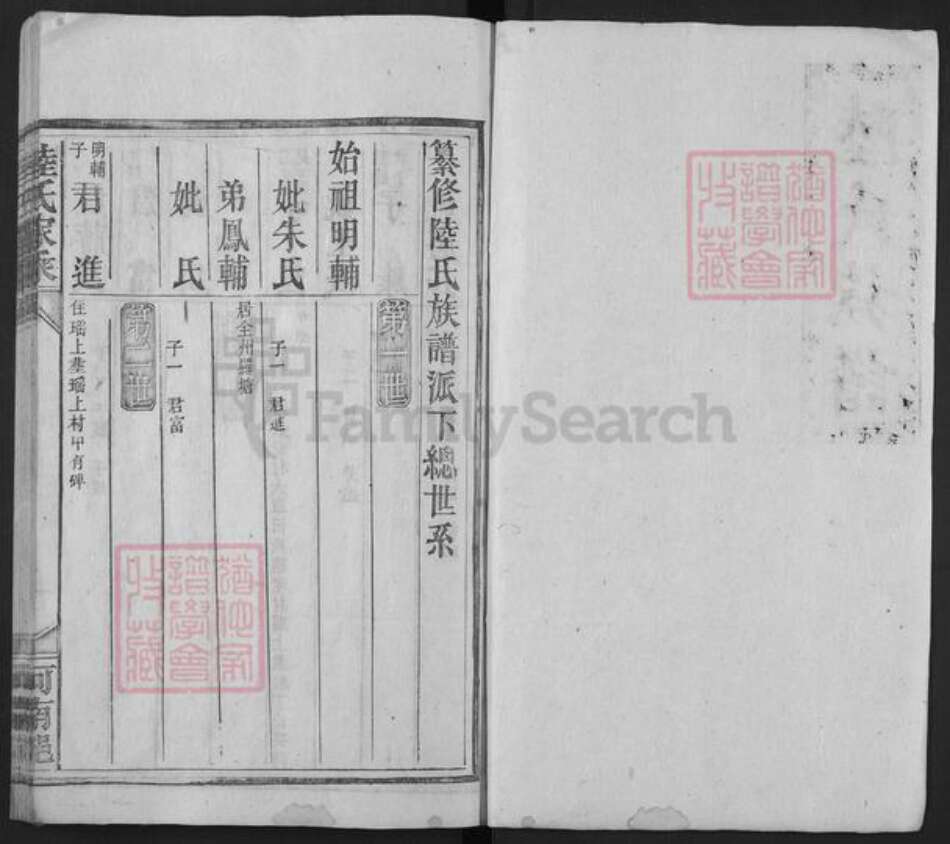 纂修陸氏族譜派下總世系
第一世
始祖明輔
妣朱氏
子一 君進
弟鳳輔
居全州
塘
妣 氏
子一 君富
第二世
明輔
子 君進
住瑶上塟瑶上村甲肯碑
陸氏家乘
河南邑
猶他家
譜學會
收藏
猶他家
譜學會
收藏
FamilySearch